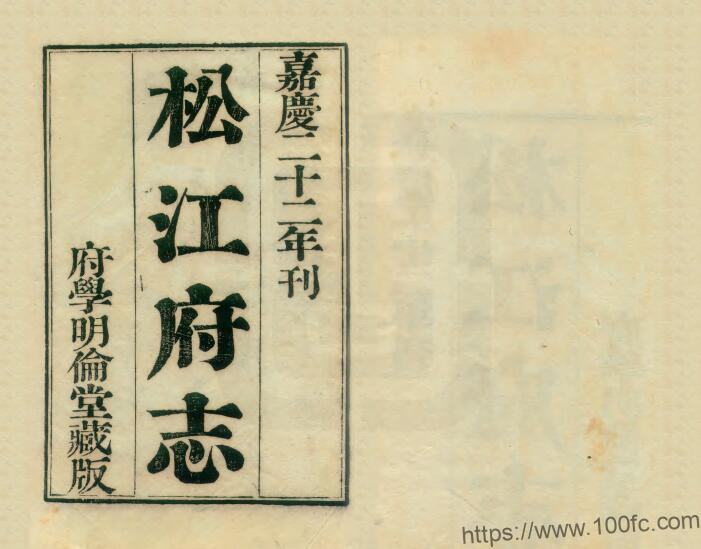 嘉慶二十二年刊
松江府志
府學明倫堂藏版
https://www.100fc.com